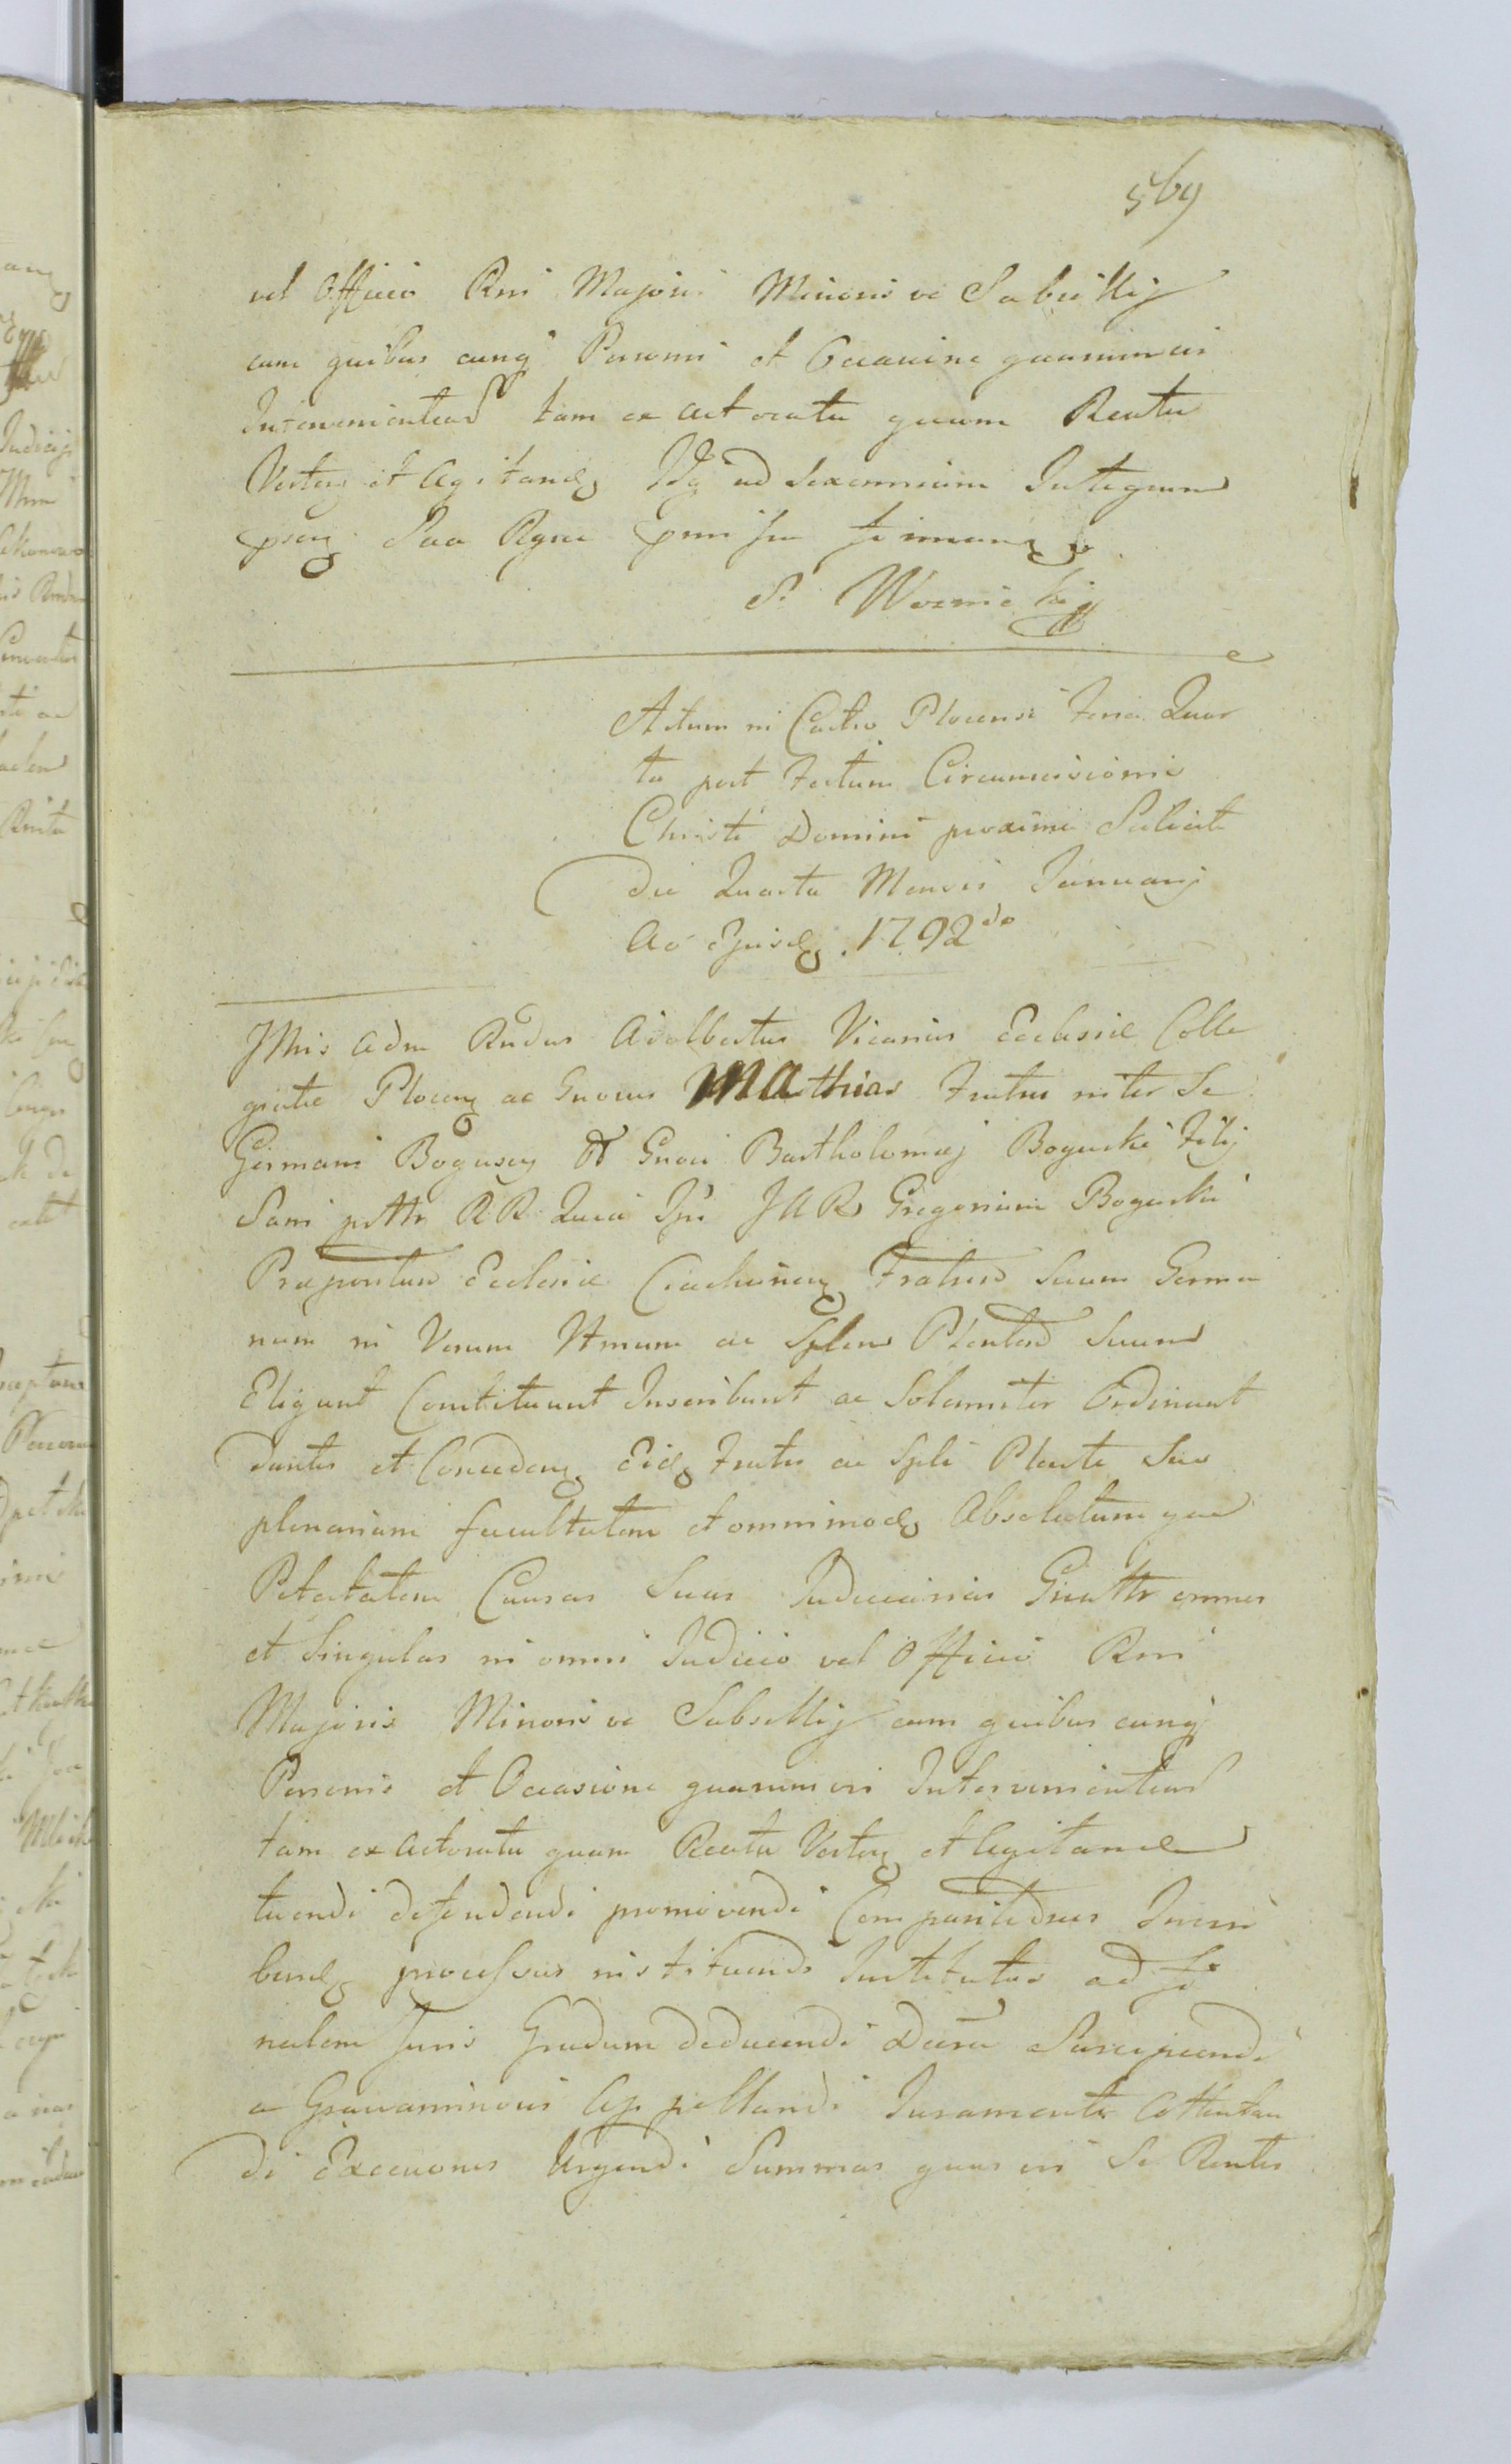 569
vel Officio Rni Majoris Minoris ve Subsellij
cum quibus cunq Personis et Occasione quarumvis
Intervenientem tam ex Actoratu quam Reatu
Verten et Agitand Idq ad Sexennium Integrum
psens Suo Rgne
S. Woznicki
Actum in Castro Plocensi Feria Quar
ta post Festum Circumcisionis
Christi Domini proxime Sulicit
die Quarta Mensis Januarij
Ao Ejusd 1792do
Illris Adm Rndus Adalbertus Vicarius Ecclesiæ Colle
giatæ Plocen ac Gnosus Mathias Fratres inter Se
Germani Boguscy & Gnosi Bartholomæj Boguski Filij
Sani pttr RR Quia Ipsi JAR Gregorium Boguski
Præpositum Ecclesiæ Ciachcinen Fratrem Suum Germa
num in Verum Ltmum ac Splem Plentem Suum
Eligunt Constituunt Inscribunt ac Solemniter Ordinant
dantes et Conceden Eid Fratri ac Spli Plenti Suo
plenariam facultatem et omnimod Absolutam que
Potestatem Causas Suas Judiciarias Gnattr omnes
et Singulas in omni Judicio vel Officio Rni
Majoris Minoris ve Subsellij cum quibus cunq
Personis et Occasione quarumvis Intervenientium
tam ex Actoratu quam Reatu Verten et Agitand
tuendi defendendi promovendi Comparitiones Inscri
bend processus instituendi Institutos ad fi
nalem Juris Gradum deducendi Decreta Suscipiendi
a Gravaminosis Appellandi Juramenta Attentan
di Exceuones Urgendi Summas quas vis Se Reates